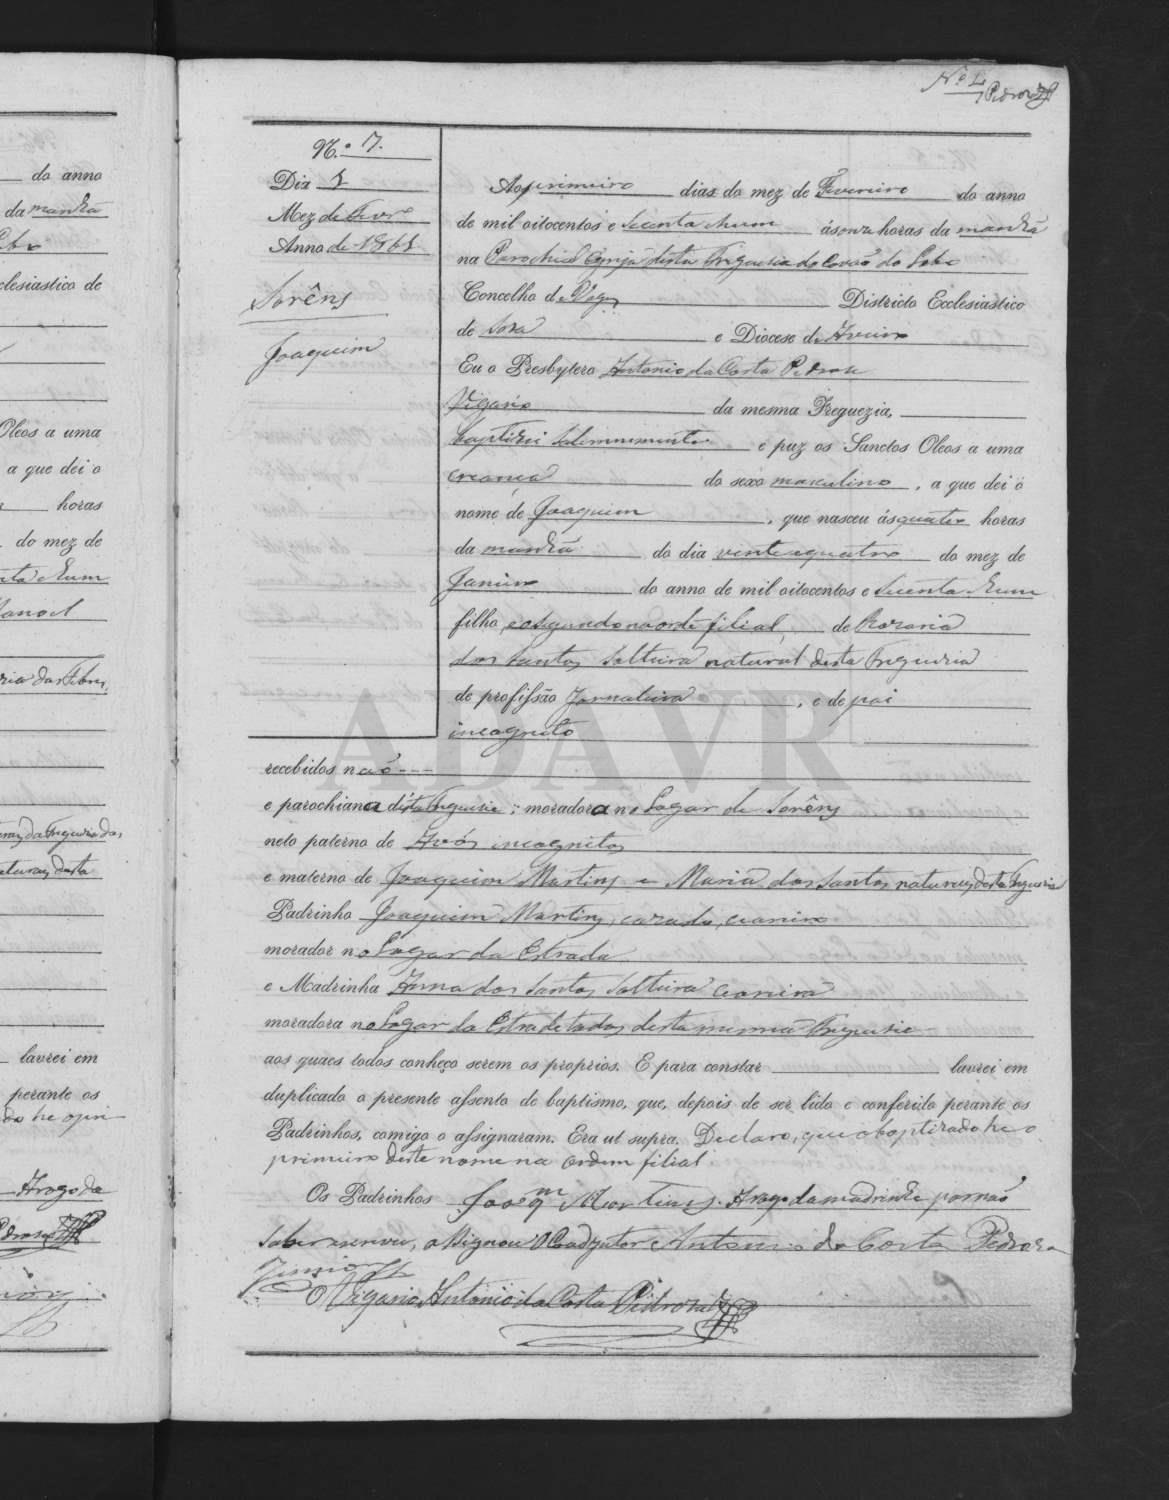 da anno
da manhã
Ecclesiastico de
Oleos a uma
a que dei o
horas
do mez de
Manoel
lavrei em
perante os
Arogo da
Nº 4
Pedroza
N.º 7.
Dia 1
Mez de Fevrº
Anno de 1861
Sorêns
Joaquim
Ao primeiro dias do mez de Fevereiro do anno
de mil oitocentos e secenta e hum ás onze horas da manhã
na Parochial Igreja desta Freguezia do Covão do Lobo
Concelho de Vagos Districto Ecclesiastico
de Soza e Diocese de Aveiro
Eu o Presbytero Antonio da Costa Pedroza
Vigario da mesma Freguezia,
baptizei solemnemente e puz os Sanctos Oleos a uma
creança do sexo masculino, a que dei o
nome de Joaquim, que nasceu ás quatro horas
da manhã do dia vinte e quatro do mez de
Janeiro do anno de mil oitocentos e secenta e hum
filho, e o segundo na ordem filial, de Rozaria
dos Santos, Solteira natural desta Freguezia
de profissão Jornaleira, e de pai
incognito
ADAVR
recebidos não
e parochiana desta Freguezia; moradora no Logar de Sorêns
neto paterno de Avós incognitos
e materno de Joaquim Martins e Maria dos Santos naturaes desta Freguezia
Padrinho Joaquim Martins, cazado,
morador no Logar da Estrada
e Madrinha Anna dos Santos Solteira
moradora no Logar da Estrada todos desta mesma Freguezia
aos quaes todos conheço serem os proprios. E para constar lavrei em
duplicado o presente assento de baptismo, que, depois de ser lido e conferido perante os
Padrinhos, comigo o assignaram. Era ut supra. Declaro, que o baptizado he o
primeiro deste nome na ordem filial.
Os Padrinhos Joaqm Martins. Arogo da madrinha por não
saber escrever, assignou O Coadjutor Antonio da Costa Pedroza
Junior
O Vigario Antonio da Costa Pedroza